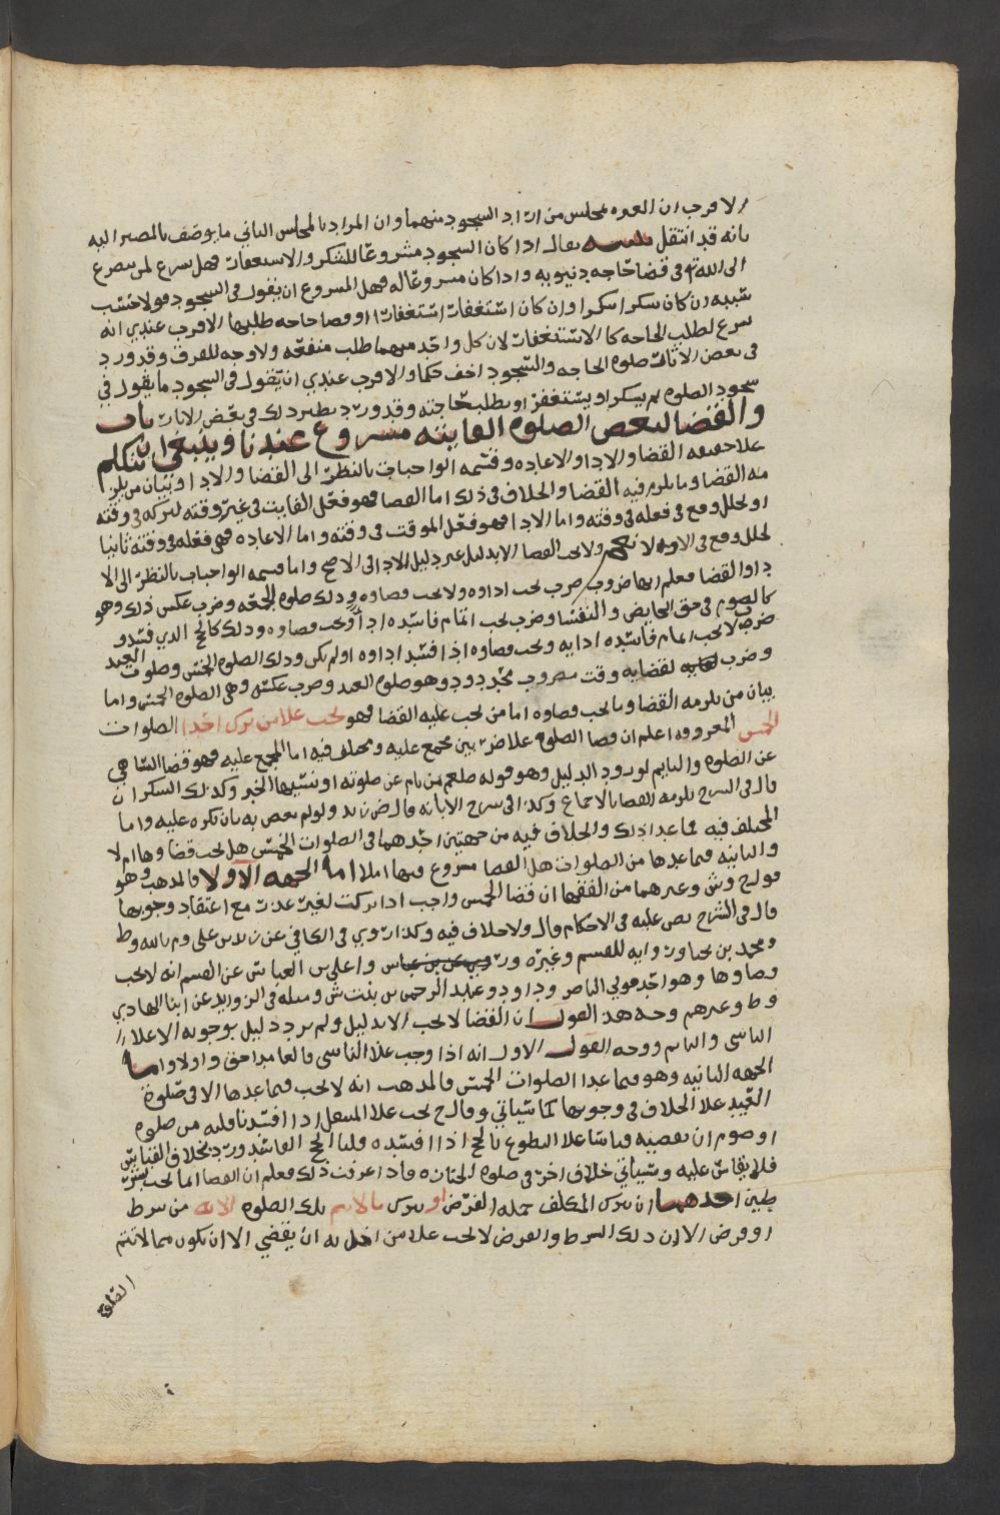 الاقرب ان العبره بمجلس من اراد السجود منهما وان المراد بالمجلس الثاني ما يوصف بالمصير اليه
بانه قد انتقل تنبيه يقال اذا كان السجود مشروعا للشكر والاستغفار فهل يشرع لمن يتضرع
الى الله تع في قضا حاجه دنيويه واذا كان مشروعا له فهل المشروع ان يقول في السجود قولا يختلف
سببه ان كان شكرا شكرا وان كان استغفارا استغفارا او قضا حاجه طلبها الاقرب عندي انه
يشرع لطلب الحاجه كالاستغفار لان كل واحد منهما طلب منفعه ولا وجه للفرق وقد ورد
في بعض الاثار صلوه الحاجه والسجود اخف حكما والاقرب عندي ان يقول في السجود ما يقول في
سجود الصلوه ثم يشكر او يستغفر او يطلب حاجته وقد ورد نظير ذلك في بعض الاثار باب
والقضا لبعض الصلوه الفايته مشروع عندنا وينبغي ان نتكلم
علا حقيقه القضا والادا والاعاده وقسمه الواجبات بالنظر الى القضا والادا وبيان من يلزم
منه القضا وما يلزم فيه القضا والخلاف في ذلك اما القضا فهو فعل الفايت في غير وقته لتركه في وقته
او لخلل وقع في فعله في وقته واما الادا فهو فعل الموقت في وقته واما الاعاده فهي فعله في وقته ثانيا
لخلل وقع في الاول ولا يجب القضا الا بدليل غير دليل الادا في الاصح واما قسمه الواجبات بالنظر الى الا
دا والقضا فعلم انها ضروب ضرب يجب اداوه ولا يجب قضاوه وذلك صلوه الجمعه وضرب عكس ذلك وهو
كالصوم في حق الحايض والنفسا وضرب يجب اتمام فاسده اداً ويجب قضاوه وذلك كالحج الذي فسد و
ضرب لا يجب اتمام فاسده ادايه ويجب قضاوه اذا فسد اداوه او لم يكن وذلك الصلوه الخمس وصلوه العيد
وضرب لقضايه وقت مضروب محدود وهو صلوه العيد وضرب عكسه وهي الصلوه الخمس واما
بيان من يلزمه القضا وما يجب قضاوه اما من يجب عليه القضا فهو يجب علا من ترك احدا الصلوات
الخمس المعروفه اعلم ان قضا الصلوه علا ضربين مجمع عليه ومختلف فيه اما المجمع عليه فهو قضا الساهي
عن الصلوه والنايم لورود الدليل وهو قوله صلعم من نام عن صلوته او نسيها الخبر وكذلك السكران
قال في الشرح يلزمه القضا بالاجماع وكذا في شرح الابانه قال ض زيد ولو لم يقض به بان نكره عليه واما
المختلف فيه فما عدا ذلك والخلاف فيه من جهتين احدهما في الصلوات الخمس هل يجب قضاوها ام لا
والثانيه فيما عداها من الصلوات هل القضا مشروع فيها ام لا اما الجهه الاولا فالمذهب وهو
قول ح وش وغيرهما من الفقها ان قضا الخمس واجب اذا تركت لغير عذر مع اعتقاد وجوبها
قال في الشرح نص عليه في الاحكام قال ولا خلاف فيه وكذا روي في الكافي عن زيد بن علي وم بالله وط
ومحمد بن يحيا ورواه للقسم وغيره وروي عن بن عباس واعلى بن العباس عن القسم انه لا يجب
قضاوها وهو احد قولي الناصر وداود وعبد الرحمن بن بنت ش ومثله في الزوايد عن ابنا الهادي
وط وغيرهم وجه هذا القول ان القضا لا يجب الا بدليل ولم يرد دليل بوجوبه الا علا
الناسي والنايم ووجه القول الاول انه اذا وجب علا الناسي فالعامد احق واولا واما
الجهه الثانيه وهو فيما عدا الصلوات الخمس فالمذهب انه لا يجب فيما عداها الا في صلوة
العيد علا الخلاف في وجوبها كما سياتي وقال ح يجب علا المتنفل اذا افسد نافله من صلوه
او صوم ان يقضيه قياسا علا التطوع بالحج اذا افسده قلنا الحج الفاسد ورد بخلاف القياس
فلا يقاس عليه وسياتي خلاف اخر في صلوه الجنازه فاذا عرفت ذلك فعلم ان القضا انما يجب بشر
طين احدهما ان يترك المكلف جمله الفرض او يترك ما لا يتم تلك الصلوه الا به من شرط
او فرض الا ان ذلك الشرط والفرض لا يجب علا من اخل به ان يقضي الا ان يكون مما لا تتم
الصلوة